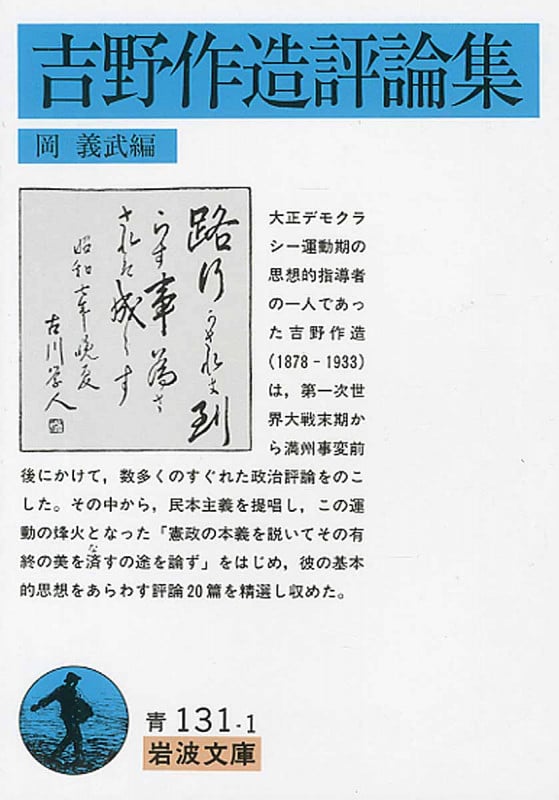 吉野作造評論集
岡 義武編
路行かざれば到
らず事為さ
ざれば成らず
昭和七年晩夏
古川学人
大正デモクラ
シー運動期の
思想的指導者
の一人であっ
た吉野作造
(1878－1933)
は，第一次世
界大戦末期か
ら満州事変前
後にかけて，数多くのすぐれた政治評論をのこ
した。その中から，民本主義を提唱し，この運
動の烽火となった「憲政の本義を説いてその有
な
終の美を済すの途を論ず」をはじめ，彼の基本
的思想をあらわす評論20篇を精選し収めた。
青 131-1
岩波文庫